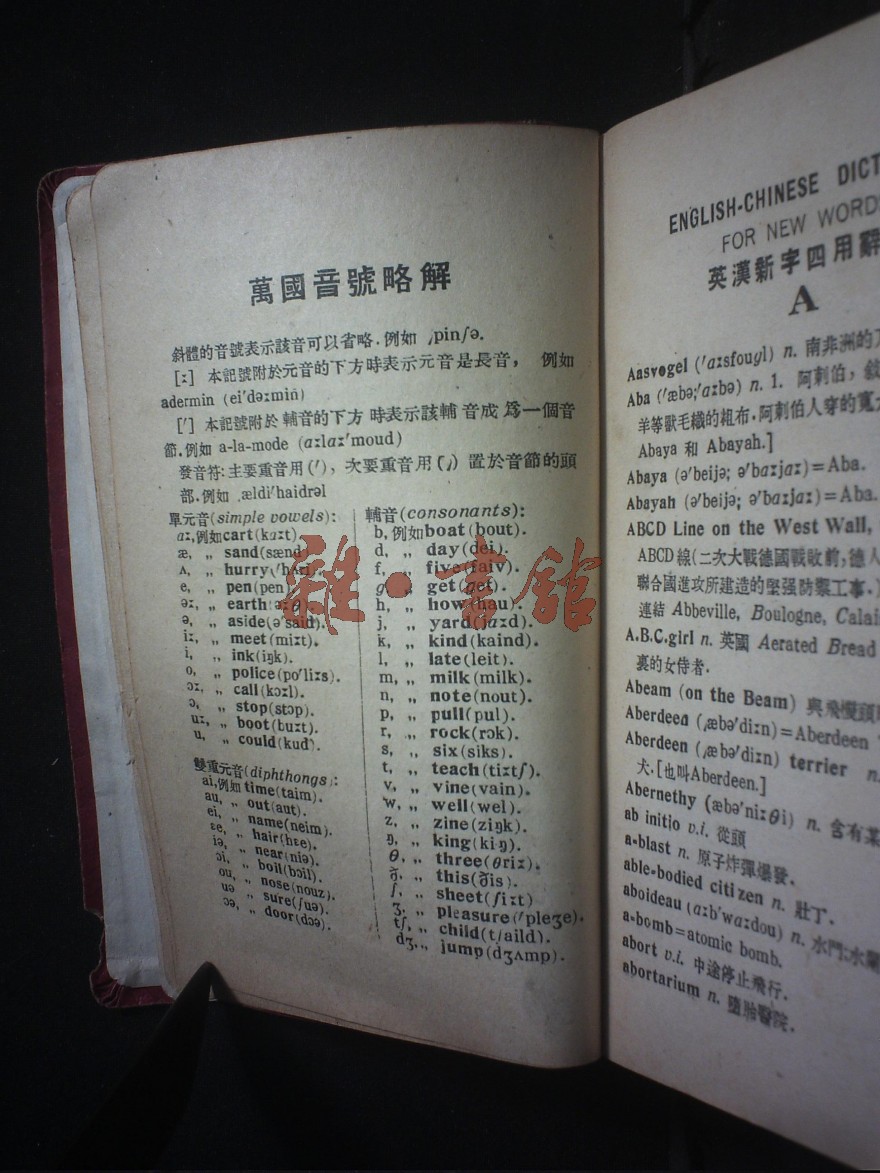 萬國音號略解
斜體的音號表示該音可以省略.例如 ,pinʃə.
[ː] 本記號附於元音的下方時表示元音是長音， 例如
adermin (ei'dəːmin)
['] 本記號附於輔音的下方時表示該輔音成爲一個音
節.例如 a-la-mode (ɑːlɑː'moud)
發音符:主要重音用(')，次要重音用(,) 置於音節的頭
部.例如 ,ældi'haidrəl
單元音(simple vowels):
ɑː,例如cart(kɑːt)
æ, ,, sand(sænd)
ʌ, ,, hurry('hʌri).
e, ,, pen(pen)
əː, ,, earth(əːθ)
ə, ,, aside(ə'said).
iː, ,, meet(miːt).
i, ,, ink(iŋk).
o, ,, police(po'liːs)
ɔː, ,, call(kɔːl).
ɔ, ,, stop(stɔp).
uː, ,, boot(buːt).
u, ,, could(kud).
雙重元音(diphthongs):
ai,例如time(taim).
au, ,, out(aut).
ei, ,, name(neim).
ɛe, ,, hair(hɛe).
iə, ,, near(niə).
ɔi, ,, boil(bɔil).
ou, ,, nose(nouz).
uə ,, sure(ʃuə).
ɔə, ,, door(dɔə).
輔音(consonants):
b, 例如boat(bout).
d, ,, day(dei).
f, ,, five(faiv).
g, ,, get(get).
h, ,, how(hau).
j, ,, yard(jɑːd).
k, ,, kind(kaind)
l, ,, late(leit).
m, ,, milk(milk).
n, ,, note(nout).
p, ,, pull(pul).
r, ,, rock(rɔk).
s, ,, six(siks).
t, ,, teach(tiːtʃ).
v, ,, vine(vain).
w, ,, well(wel).
z, ,, zine(ziŋk).
ŋ, ,, king(kiŋ).
θ, ,, three(θriː).
ð, ,, this(ðis).
ʃ, ,, sheet(ʃiːt)
ʒ, ,, pleasure('pleʒe).
tʃ, ,, child(tʃaild).
dʒ,,, jump(dʒʌmp).
ENGLISH-CHINESE DICT
FOR NEW WORDS
英漢新字四用辭
A
Aasvogel ('ɑːsfougl) n. 南非洲的
Aba ('æbə;'ɑːbə) n. 1. 阿剌伯，敍
羊等獸毛織的粗布.阿剌伯人穿的寬
Abaya 和 Abayah.]
Abaya (ə'beijə; ə'bɑːjɑː)=Aba.
Abayah (ə'beijə; ə'bɑːjɑː)=Aba.
ABCD Line on the West Wall,
ABCD線(二次大戰德國戰敗前,德人
聯合國進攻所建造的堅强防禦工事.)
連結 Abbeville, Boulogne, Calai
A.B.C.girl n. 英國 Aerated Bread
裏的女侍者.
Abeam (on the Beam) 與飛機頭
Aberdeen (,æbə'diːn)=Aberdeen
Aberdeen (,æbə'diːn) terrier n.
犬.[也叫Aberdeen.]
Abernethy (æbə'niːθi) n. 含有某
ab initio v.i. 從頭
a-blast n. 原子炸彈爆發.
able-bodied citizen n. 壯丁.
aboideau (ɑːb'wɑːdou) n. 水門:水閘
a-bomb=atomic bomb.
abort v.i. 中途停止飛行.
abortarium n. 墮胎醫院.
雜·書館